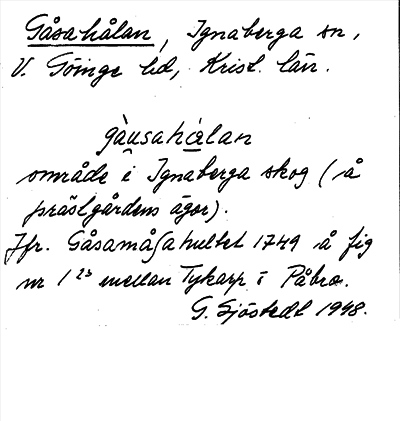 Gåsahålan, Ignaberga sn,
V. Göinge hd, Krist. län.
gàu̯sahálan
område i Ignaberga skog (å
prästgårdens ägor).
Jfr. Gåsamåſahultet 1749 å fig
nr 1 23 mellan Tykarp i Påbro.
G. Sjöstedt 1948.